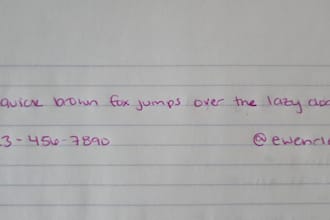 quick brown fox jumps over the lazy
3-456-7890 @ewenri